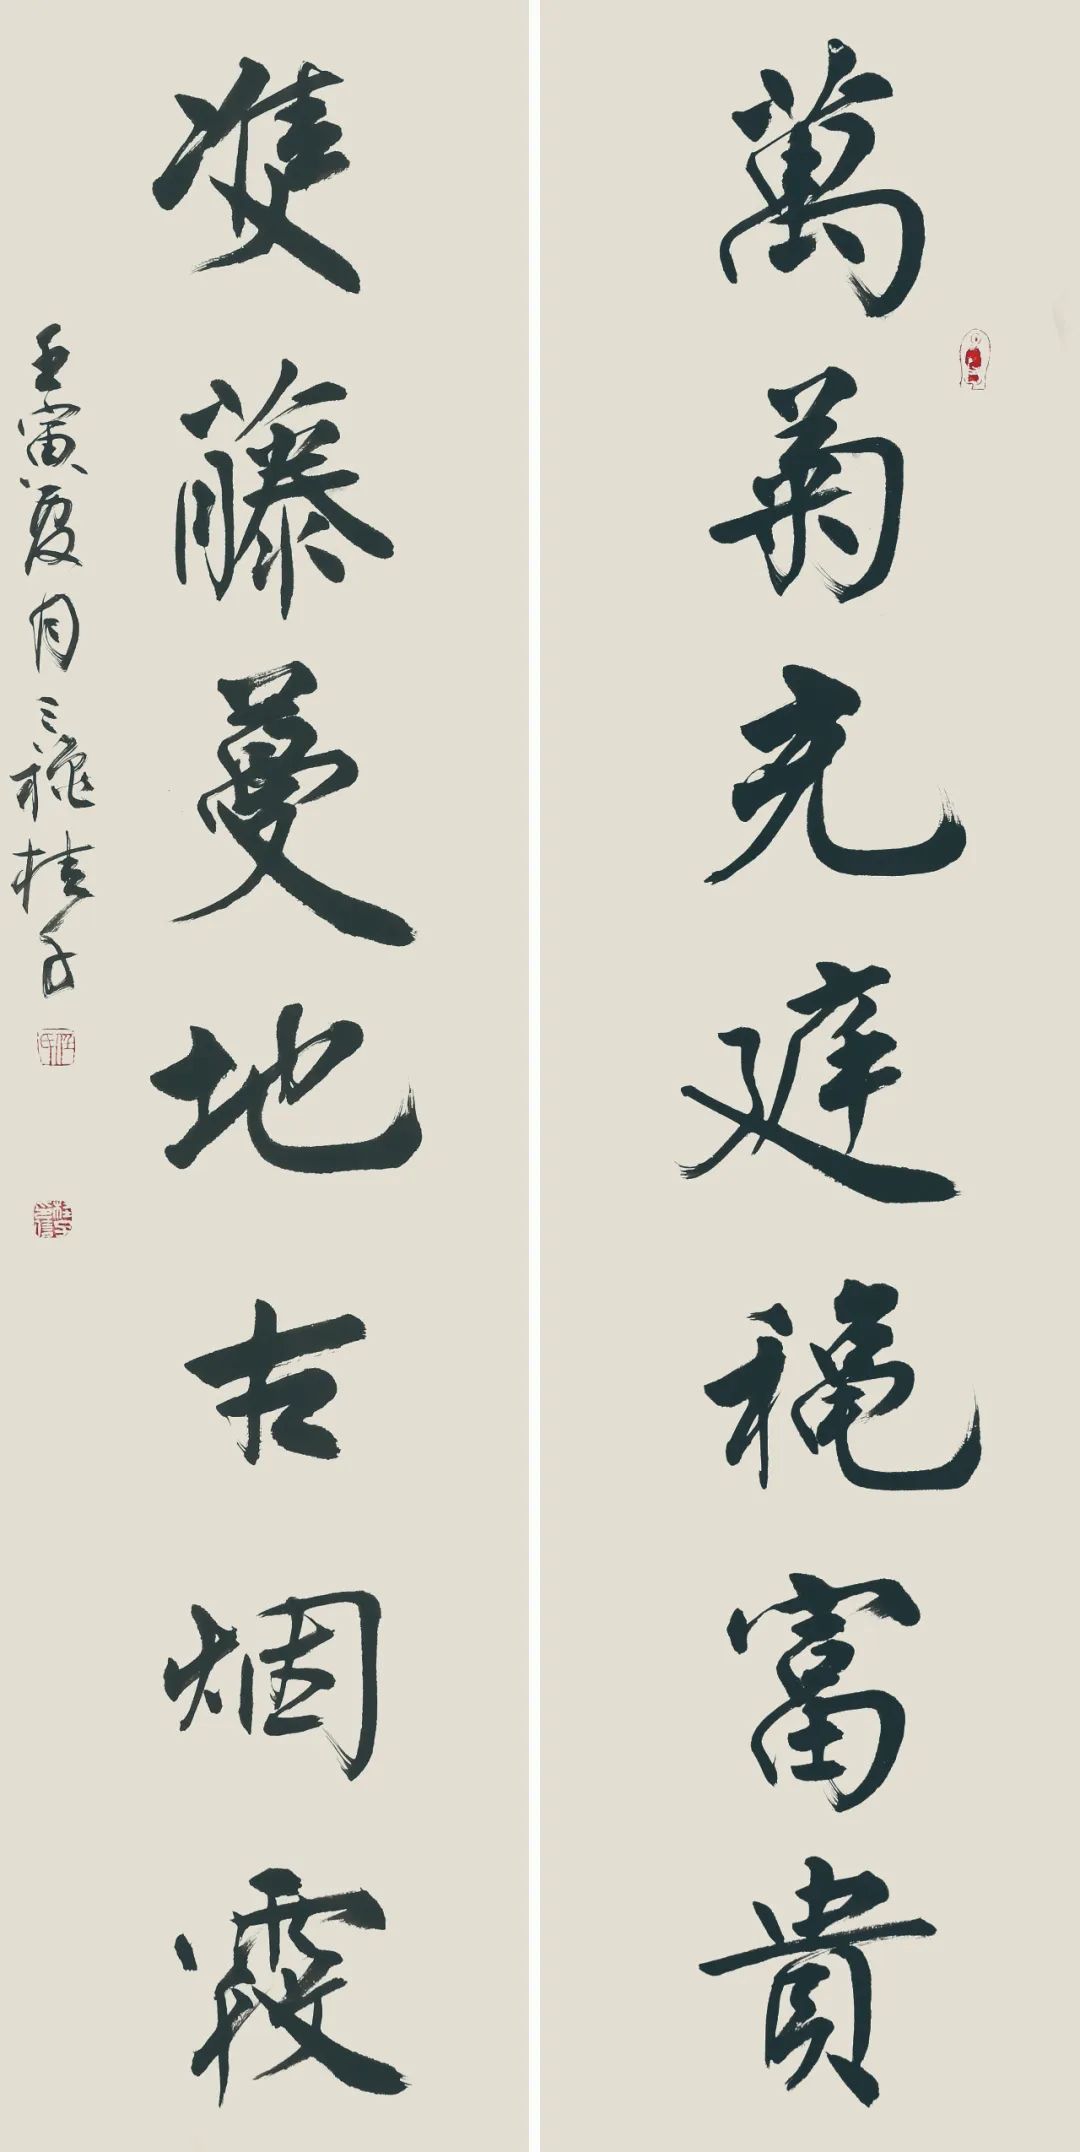 萬菊充庭穐富貴
雙藤蔓地古烟霞
壬寅夏月三穐桂子